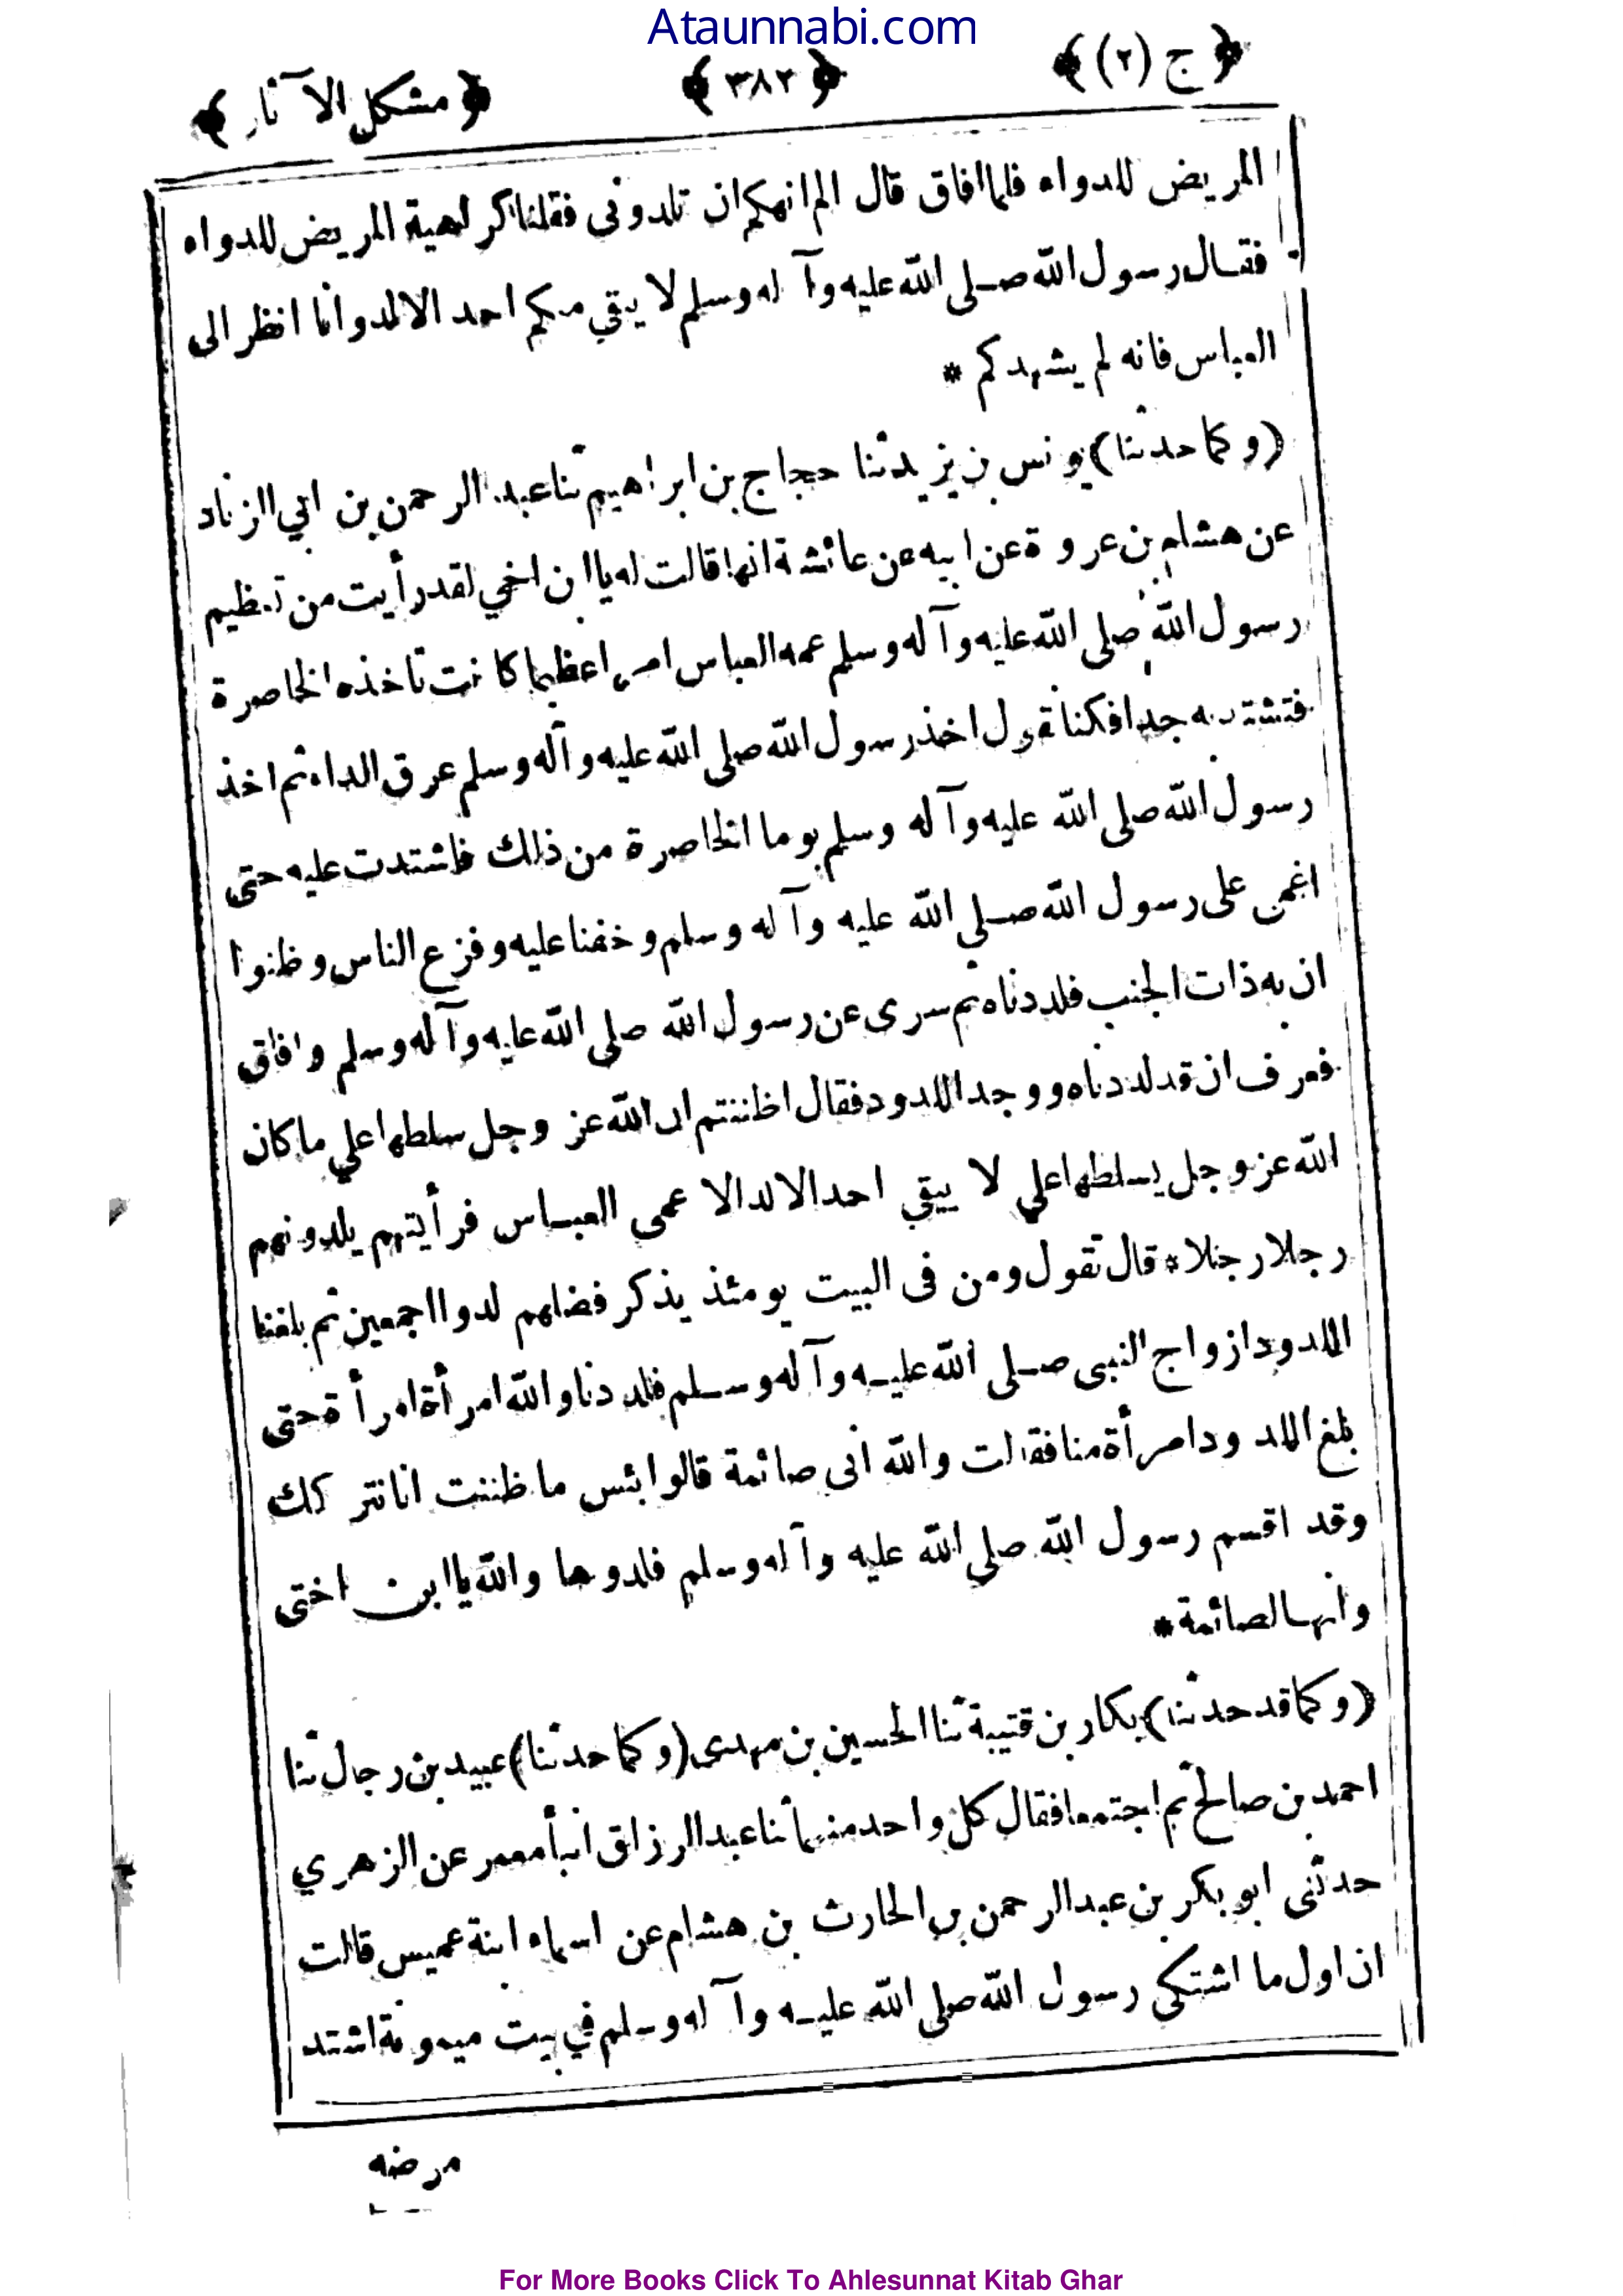 Ataunnabi.com
﴿ ج (٢) ﴾ ﴿ ٣٨٢ ﴾ ﴿ مشكل الآثار ﴾
المريض للدواء فلما افاق قال الم انهكم ان تلدونى فقلنا كراهية المريض للدواء
فقال رسول الله صلى الله عليه وآله وسلم لا يبقي منكم احد الا لد وانا انظر الى
العباس فانه لم يشهدكم *
(وكما حدثنا) يونس بن يزيد ثنا حجاج بن ابراهيم ثنا عبد الرحمن بن ابي الزناد
عن هشام بن عروة عن ابيه عن عائشة انها قالت له يا ابن اخي لقد رأيت من تعظيم
رسول الله صلى الله عليه وآله وسلم عمه العباس امرا عظيما كانت تاخذه الخاصرة
فتشتد به جدا فكنا نقول اخذ رسول الله صلى الله عليه وآله وسلم عرق الداء ثم اخذ
رسول الله صلى الله عليه وآله وسلم يوما الخاصرة من ذلك فاشتدت عليه حتى
اغمى على رسول الله صلي الله عليه وآله وسلم وخفنا عليه وفزع الناس وظنوا
ان به ذات الجنب فلددناه ثم سرى عن رسول الله صلى الله عليه وآله وسلم وافاق
فعرف ان قد لددناه ووجد اللدود فقال اظننتم ان الله عز وجل سلطها علي ما كان
الله عز وجل يسلطها علي لا يبقي احد الا لد الا عمى العباس فرأيتهم يلدونهم
رجلا رجلا * قال تقول ومن فى البيت يومئذ يذكر فضلهم لدوا اجمعين ثم بلغنا
اللدود ازواج النبى صلى الله عليه وآله وسلم فلددنا والله امرأة امرأة حتى
بلغ اللدود امرأة منا فقالت والله انى صائمة قالوا بئس ما ظننت انا نتركك
وقد اقسم رسول الله صلي الله عليه وآله وسلم فلدوها والله يا ابن اختى
وانها لصائمة *
(وكما قد حدثنا) بكار بن قتيبة ثنا الحسين بن مهدى (وكما حدثنا) عبيد بن رجال ثنا
احمد بن صالح ثم اجتمعا فقال كل واحد منهما ثنا عبد الرزاق انبأ معمر عن الزهري
حدثنى ابو بكر بن عبد الرحمن بن الحارث بن هشام عن اسماء ابنة عميس قالت
ان اول ما اشتكى رسول الله صلى الله عليه وآله وسلم في بيت ميمونة اشتد
مرضه
For More Books Click To Ahlesunnat Kitab Ghar